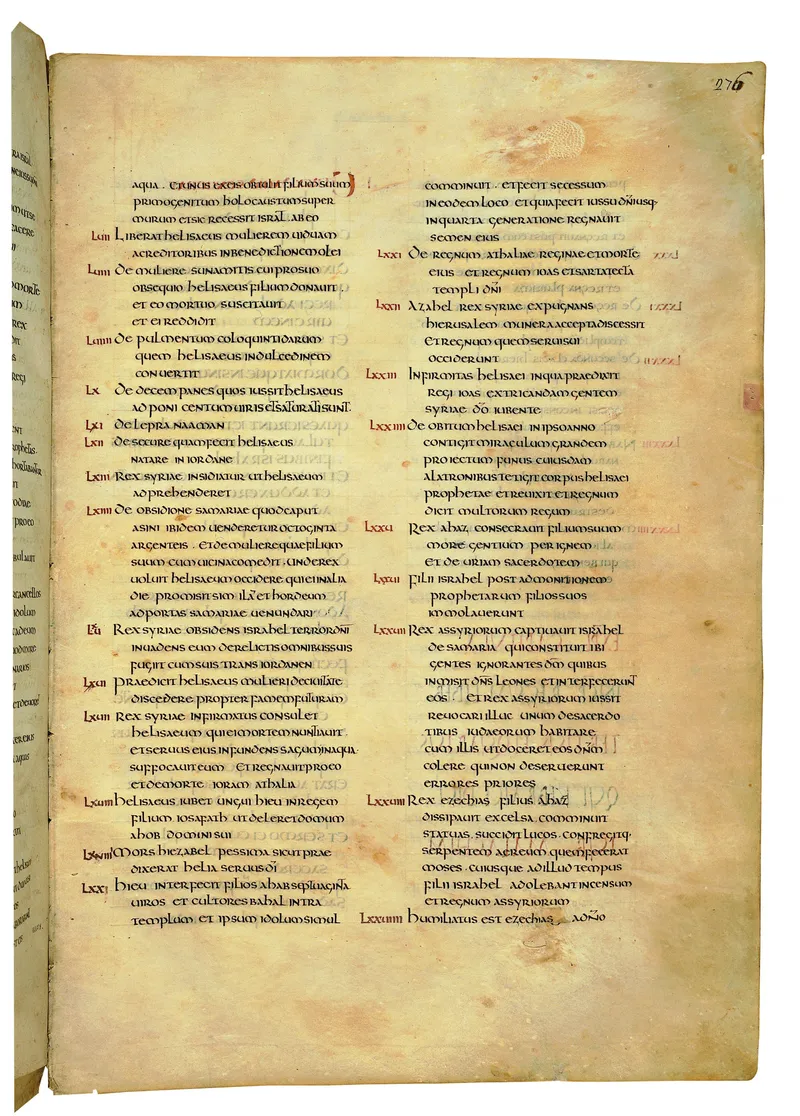 276
aqua . et unus ex eis obtulit filium suum
primogenitum holocaustum super
murum et sic recessit isrāl . ab eo
LVII Liberat helisaeus mulierem uiduam
a creditoribus in benedictionem olei
LVIII De muliere sunamitis cui pro suo
obsequio helisaeus filium donauit .
et eo mortuo suscitauit
et ei reddidit
LVIIII De pulmentum coloquintidarum
quem helisaeus in dulcedinem
conuertit
LX De decem panes quos iussit helisaeus
adponi centum uiris et saturati sunt .
LXI De lepra naaman
LXII de secure quam fecit helisaeus
natare in iordane
LXIII Rex syriae insidiatur ut helisaeum
adprehenderet
LXIIII De obsidione samariae quod caput
asini ibidem uenderetur octoginta
argenteis . et de muliere quae filium
suum cum uicina comedit . unde rex
uoluit helisaeum occidere qui et in alia
die promisit similā et hordeum
ad portas samariae uenundari
LXV Rex syriae obsidens israhel terror dn̄i
inuadens eum derelictis omnibus suis
fugiit cum suis trans iordanen
LXVI Praedicit helisaeus mulieri de ciuitate
discedere propter famem futuram
LXVII Rex syriae infirmatus consulet
helisaeum qui ei mortem nuntiauit
et seruus eius infundens sagum in aqua
suffocauit eum et regnauit pro eo
et de morte ioram athalia
LXVIII helisaeus iubet ungui hieu in regem
filium iosafath ut deleret domum
ahob domini sui
LXVIIII Mors hiezabel pessima sicut prae
dixerat helia seruus dī
LXX hieu interfecit filios ahab septuaginta
uiros et cultores bahal intra
templum et ipsum idolum simul
comminuit . et fecit secessum
in eodem loco et quia fecit iussu dn̄i usq·
in quarta generatione regnauit
semen eius
LXXI De regnum athaliae reginae et morte
eius et regnum ioas et sartatecta
templi dn̄i
LXXII Azahel rex syriae expugnans
hierusalem munera accepta discessit
et regnum quem serui sui
occiderunt
LXXIII Infirmitas helisaei in qua praedixit
regi ioas extricandam gentem
syriae dō iubente
LXXIIII De obitum helisaei in ipso anno
contigit miraculum grandem
proiectum funus cuiusdam
a latronibus tetigit corpus helisaei
prophetae et reuixit et regnum
dicit multorum regum
LXXV Rex ahaz consecrauit filium suum
more gentium per ignem
et de uriam sacerdotem
LXXVI Filii israhel post admonitionem
prophetarum filios suos
immolauerunt
LXXVII Rex assyriorum captiuauit israhel
de samaria qui constituit ibi
gentes ignorantes dm̄ quibus
inmisit dn̄s leones et interfecerunt
eos . et rex assyriorum iussit
reuocari illuc unum de sacerdo
tibus iudaeorum habitare
cum illis ut doceret eos dn̄m
colere qui non deseruerunt
errores priores
LXXVIII Rex ezechias filius ahaz
dissipauit excelsa comminuit
statuas . succidit lucos . confregitq·
serpentem aereum quem fecerat
moses . cuiusque ad illud tempus
filii israhel adolebant incensum
et regnum assyriorum
LXXVIIII humiliatus est ezechias ad dn̄o